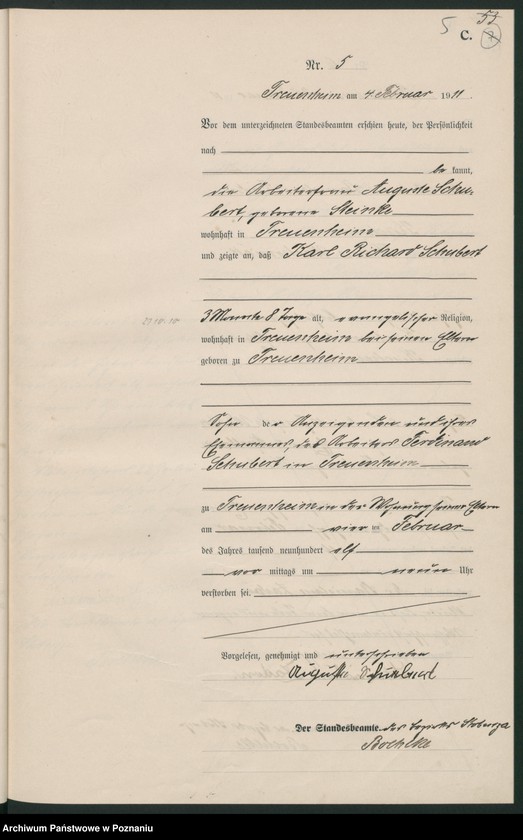 5 C.
Nr. 5
Treuenheim am 4. Februar 1911.
Vor dem unterzeichneten Standesbeamten erschien heute, der Persönlichkeit
nach
be kannt,
die Arbeiterfrau Auguste Schu-
bert, geborene Steinke
wohnhaft in Treuenheim
und zeigte an, daß Karl Richard Schubert
3 Monate 8 Tage alt, evangelischer Religion,
wohnhaft in Treuenheim bei seinen Eltern
geboren zu Treuenheim
Sohn der Anzeigenden und ihres
Ehemannes, des Arbeiters Ferdinand
Schubert in Treuenheim
zu Treuenheim in der Wohnung seiner Eltern
am vier ten Februar
des Jahres tausend neunhundert elf
vor mittags um neun Uhr
verstorben sei.
Vorgelesen, genehmigt und unterschrieben
Auguste Schubert
Der Standesbeamte des Bezirks
Archiwum Państwowe w Poznaniu